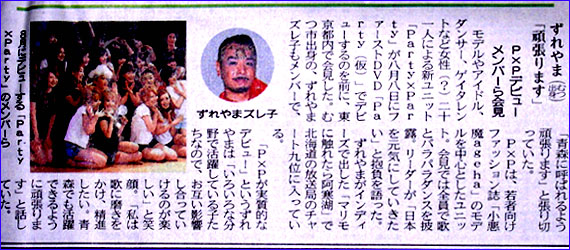 ずれやま（むつ）
「頑張ります」
P×Pデビュー
メンバーら会見
モデルやアイドル、
ダンサー、ゲイタレン
トなど女性（？）二十
一人による新ユニット
「Party×Par
ty」が八月八日にフ
ァーストDVD「Pa
rty（仮）」でデビ
ューするのを前に、東
京都内で会見した。む
つ市出身の、ずれやま
ズレ子もメンバーで、
「青森に呼ばれるよう
頑張ります」と張り切
っていた。
P×Pは、若者向け
ファッション誌「小悪
魔ageha」のモデ
ルを中心としたユニッ
ト。会見では全員で歌
とパラパラダンスを披
露。リーダーが「日本
を元気にしていきた
い」と抱負を語った。
ずれやまがインディ
ーズで出した「マリモ
に触れたら阿寒湖」で
北海道の放送局のチャ
ート九位に入ってい
る。
「P×Pが実質的な
デビュー」というずれ
やまは「いろいろな分
野で活躍している子た
ちなので、
お互い影響
し合ってい
けるのが楽
しい」と笑
顔。「私は
歌に磨きを
かけ、精進
したい。青
森でも活躍
できるよう
に頑張りま
す」と話し
ていた。
ずれやまズレ子
デビューする「Party
×Party」のメンバーら